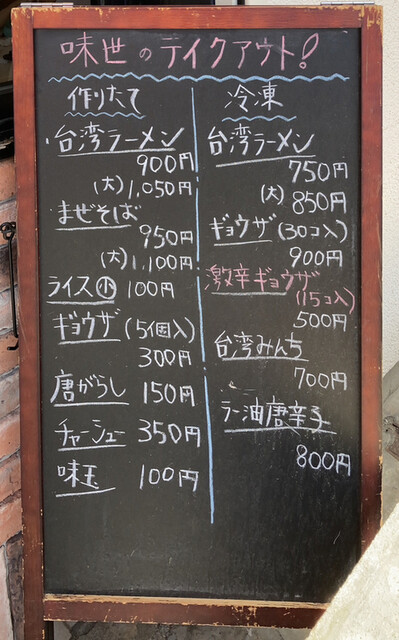 味世のテイクアウト!
作りたて
台湾ラーメン
900円
(大)1,050円
まぜそば
950円
(大)1,100円
ライス小 100円
ギョウザ(5個入)
300円
唐がらし 150円
チャーシュー 350円
味玉 100円
冷凍
台湾ラーメン
750円
(大)850円
ギョウザ(30コ入)
900円
激辛ギョウザ
(15コ入)
500円
台湾みんち
700円
ラー油唐辛子
800円